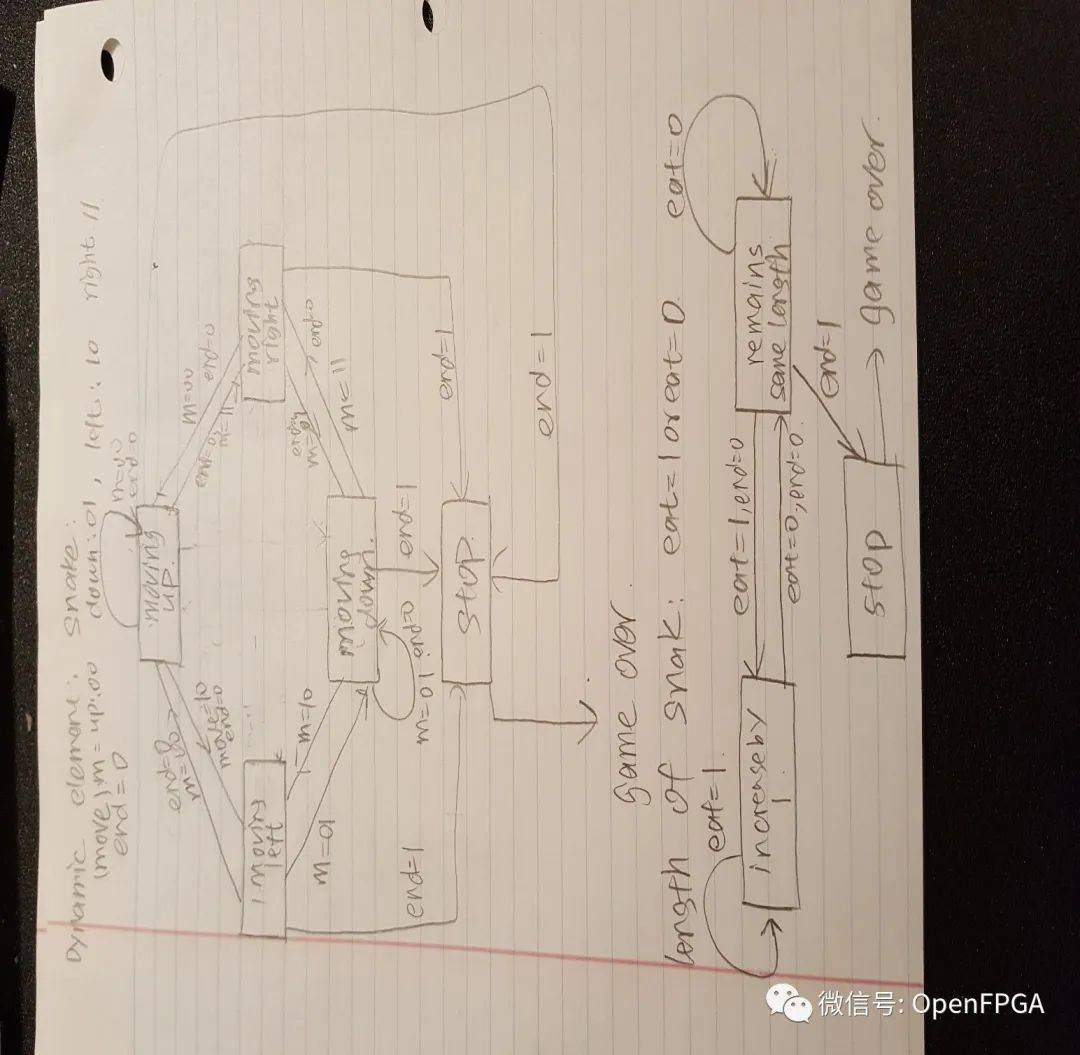 Dynamic element: Snake:
(move) m = up:00 down:01, left:10 right.11
end=0
m=00
end=0
moving
up.
m=00
end=0
end=0
m=11
moving
right
end=0
m=11
end=0
m=00
move=10
end=0
moving
left
m=10
m=01
moving
down.
m=01 end=0
end=1
end=1
end=1
end=1
Stop.
game over
length of snak: eat=1 or eat=0
eat=0
eat=1.
increase by
1
eat=1, end=0
eat=0, end=0.
remains
same length
end=1
stop
game over.
微信号: OpenFPGA